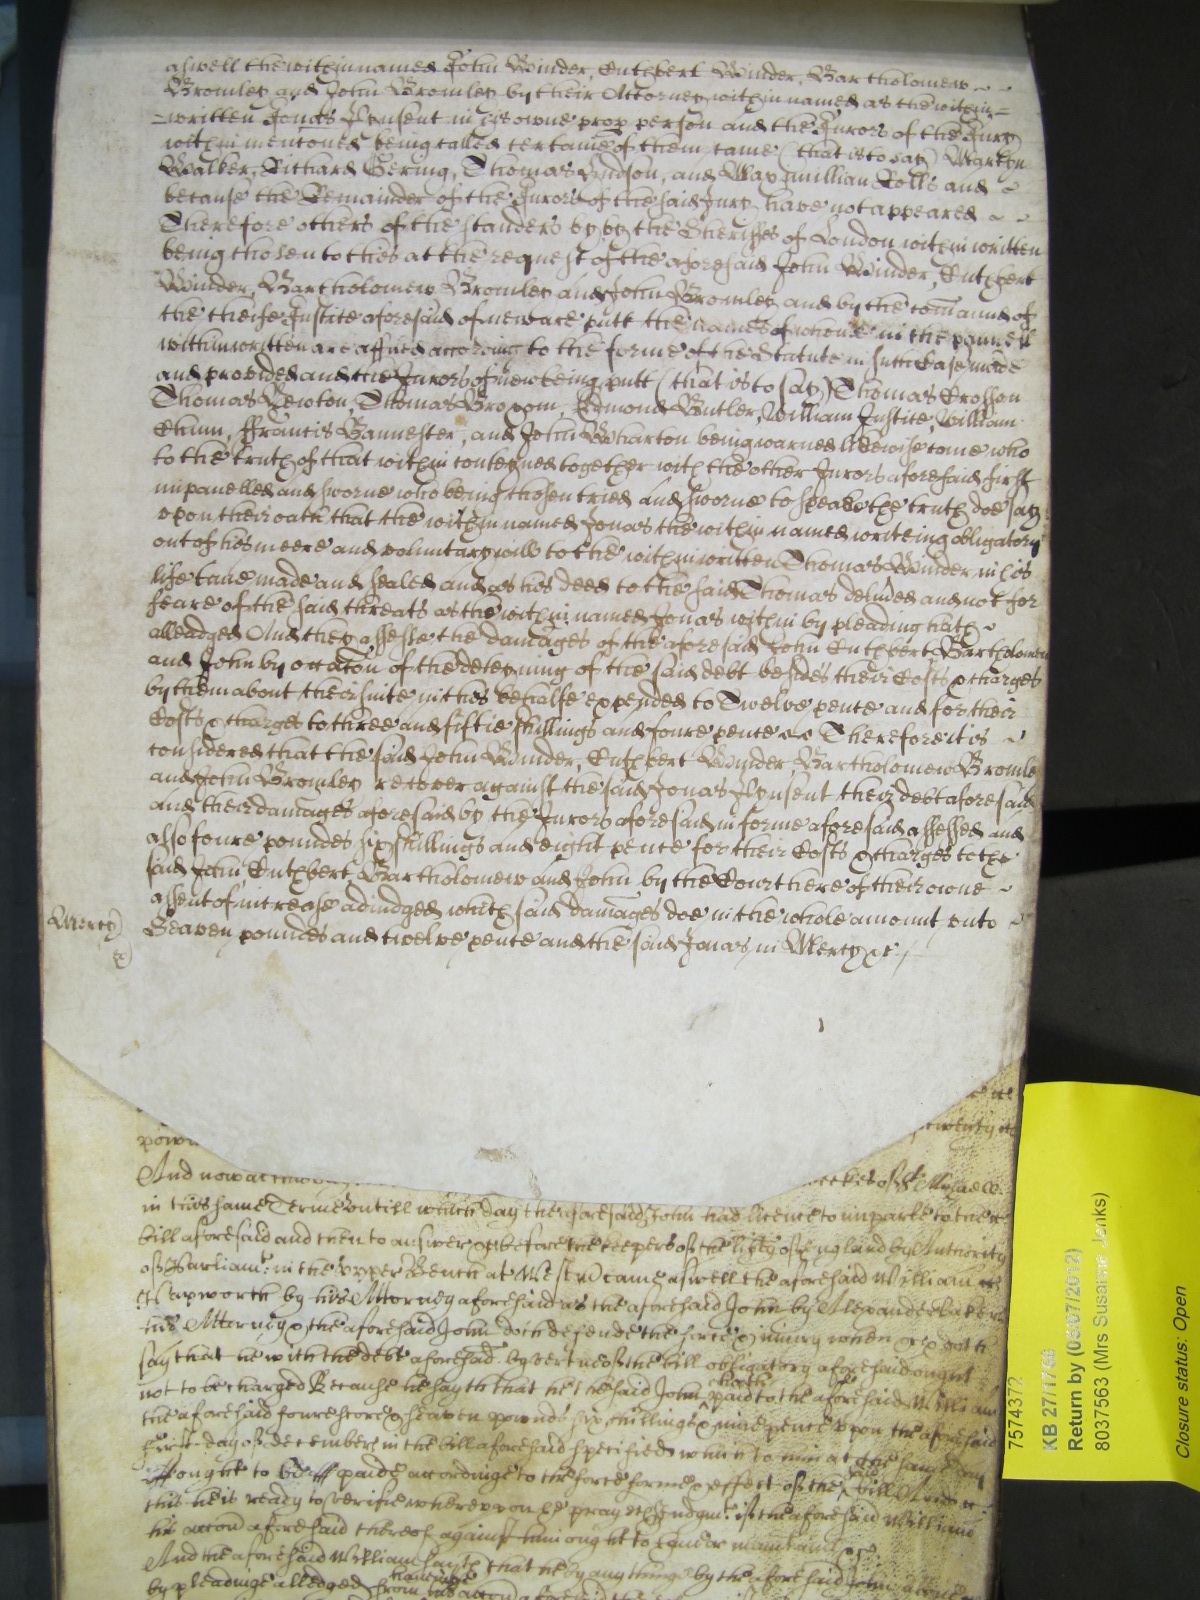 aswell the within named John Winder, Cuthbert Winder, Bartholomew
Bromley and John Bromley by their Attorney within named as the within
written Jonas in his owne prop person and the Jurors of the Jury
within mentoned being called certaine of them came (that is to say) Martyn
Walker, Richard Gering, Thomas Hudson, and Maxmillian Colls and
because the Remainder of the Jurors of the said Jury have not appeared
Therefore others of the standers by by the Sheriffes of London within written
being chosen to this at the request of the aforesaid John Winder, Cuthbert
Winder, Bartholomew Bromley and John Bromley and by the comaund of
the cheife Justice aforesaid of new are putt the names of whome in the pannell
within written are affiled according to the forme of the Statute in such case made
and provided and the Jurors of new being putt (that is to say) Thomas Crosson
Thomas Newton, Thomas Broxom, Edmond Butler, William Justice, William
Ekinn, ffrancis Bannester, and John Wharton being warned likewise come who
to the truth of that within conteyned together with the other Jurors aforesaid first
impanelled and sworne who being chosen tried and sworne to speake the truth doe say
upon their oath that the within named Jonas the within named writeing obligatory
out of his meere and voluntary will to the within written Thomas Winder in his
life tyme made and sealed and as his deed to the said Thomas delived and not for
feare of the said threats as the within named Jonas within by pleading hath
alleadged And they assesse the damages of the aforesaid John Cuthbert Bartholomew
and John by occation of the deteyning of the said debt besides their Costs & charges
by them about their suite in this behalfe expended to Twelve pence and for their
Costs & charges to three and fiftie shillings and foure pence Therefore it is
considered that the said John Winder, Cuthbert Winder, Bartholomew Bromley
and John Bromley recover against the said Jonas their debt aforesaid
and their damages aforesaid by the Jurors aforesaid in forme aforesaid assessed and
also foure poundes six shillings and eight pence for their Costs & charges to the
said John Cuthbert, Bartholomew and John by the Court here of their owne
assent of increase adiudged which said damages doe in the whole amount unto
Mercy
Seaven poundes and twelve pence and the said Jonas in Mercy &c.
And now at
in this same Terme untill which day the aforesaid John had licence to imparle to the
bill aforesaid and then to answer &c before the keepers of the lib̃ty of England by Authority
of Parliamt. in the Upper Bench at Westm̃ came aswell the aforesaid William
Papworth by his Attorney aforesaid as the aforesaid John by Alexander Baker
his Attorney & the aforesaid John doth defende the force & iniury when &c & doth
say that he with the debt aforesaid by vertue of the bill obligatory aforesaid ought
not to be charged Because he sayth that he the said John hath paid to the aforesaid William
the aforesaid fourescore & seaven pownds six shillings & nine pence upon the aforesaid
first day of december in the bill aforesaid specified which to him at the same day
ought to be paide accordinge to the force forme & effect of the said bill And
this he is ready to verifie whereupon he prayeth Judgmt. if the aforesaid William
his accon aforesaid thereof against him ought to have or maintaine &c
And the aforesaid William sayth that he by any thinge by the aforesaid John above
by pleadinge alledged from haveinge his accon aforesaid
7574372
KB 27/1756
Return by (05/07/2012)
8037563 (Mrs Susanne Jenks)
Closure status: Open